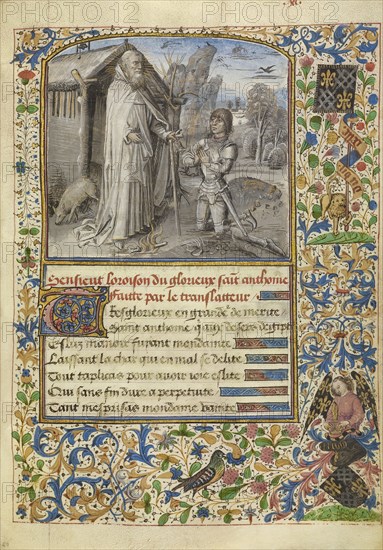 Sensieut loroison du glorieux saint anthoine
faitte par le translateur
Tres glorieux en grande de merite
Saint anthoine qui aux desers degipte
Eslus manoir fuiant mondanite
Laissant la char qui en mal se delite
Tout taplicas pour auoir voie eslite
Qui sans fin dure a perpetuite
Tant mesprisas mondaine vanite